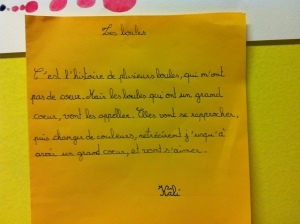 Les boules
C'est l'histoire de plusieurs boules, qui m'ont
pas de coeur. Mais les boules qui ont un grand
coeur, vont les appeller. Elles vont se rapprocher,
puis changer de couleurs, rétrécirent j'usqu'à
avoir un grand coeur, et vont s'aimer.